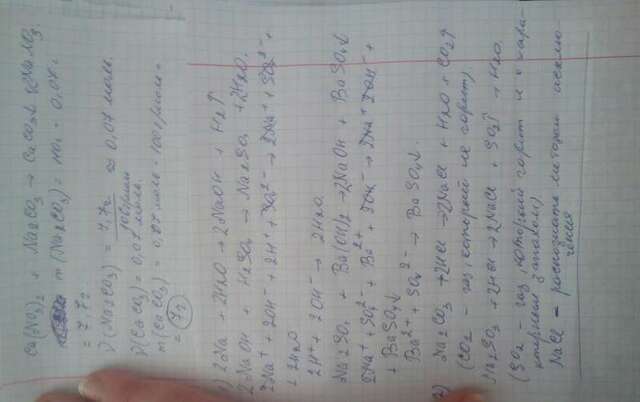 Ca(NO3)2 + Na2CO3 → CaCO3↓ + 2NaNO3
m(Na2CO3) = 110г · 0,07 =
= 7,7г
ν(Na2CO3) = 7,7г / 106г/моль ≈ 0,07 моль.
ν(CaCO3) = 0,07 моль.
m(CaCO3) = 0,07 моль · 100 г/моль =
= 7г
1) 2Na + 2H2O → 2NaOH + H2↑
2NaOH + H2SO4 → Na2SO4 + 2H2O.
2Na+ + 2OH- + 2H+ + SO4 2- → 2Na+ + SO4 2- +
+ 2H2O
2H+ + 2OH- → 2H2O.
Na2SO4 + Ba(OH)2 → 2NaOH + BaSO4↓
2Na+ + SO4 2- + Ba2+ + 2OH- → 2Na+ + 2OH- +
+ BaSO4↓
Ba2+ + SO4 2- → BaSO4↓.
2) Na2CO3 + 2HCl → 2NaCl + H2O + CO2↑
(CO2 - газ, который не горит).
Na2SO3 + 2HCl → 2NaCl + SO2↑ + H2O.
(SO2 - газ, который горит и с хара-
ктерным запахом)
NaCl - распознаете методом исклю-
чения